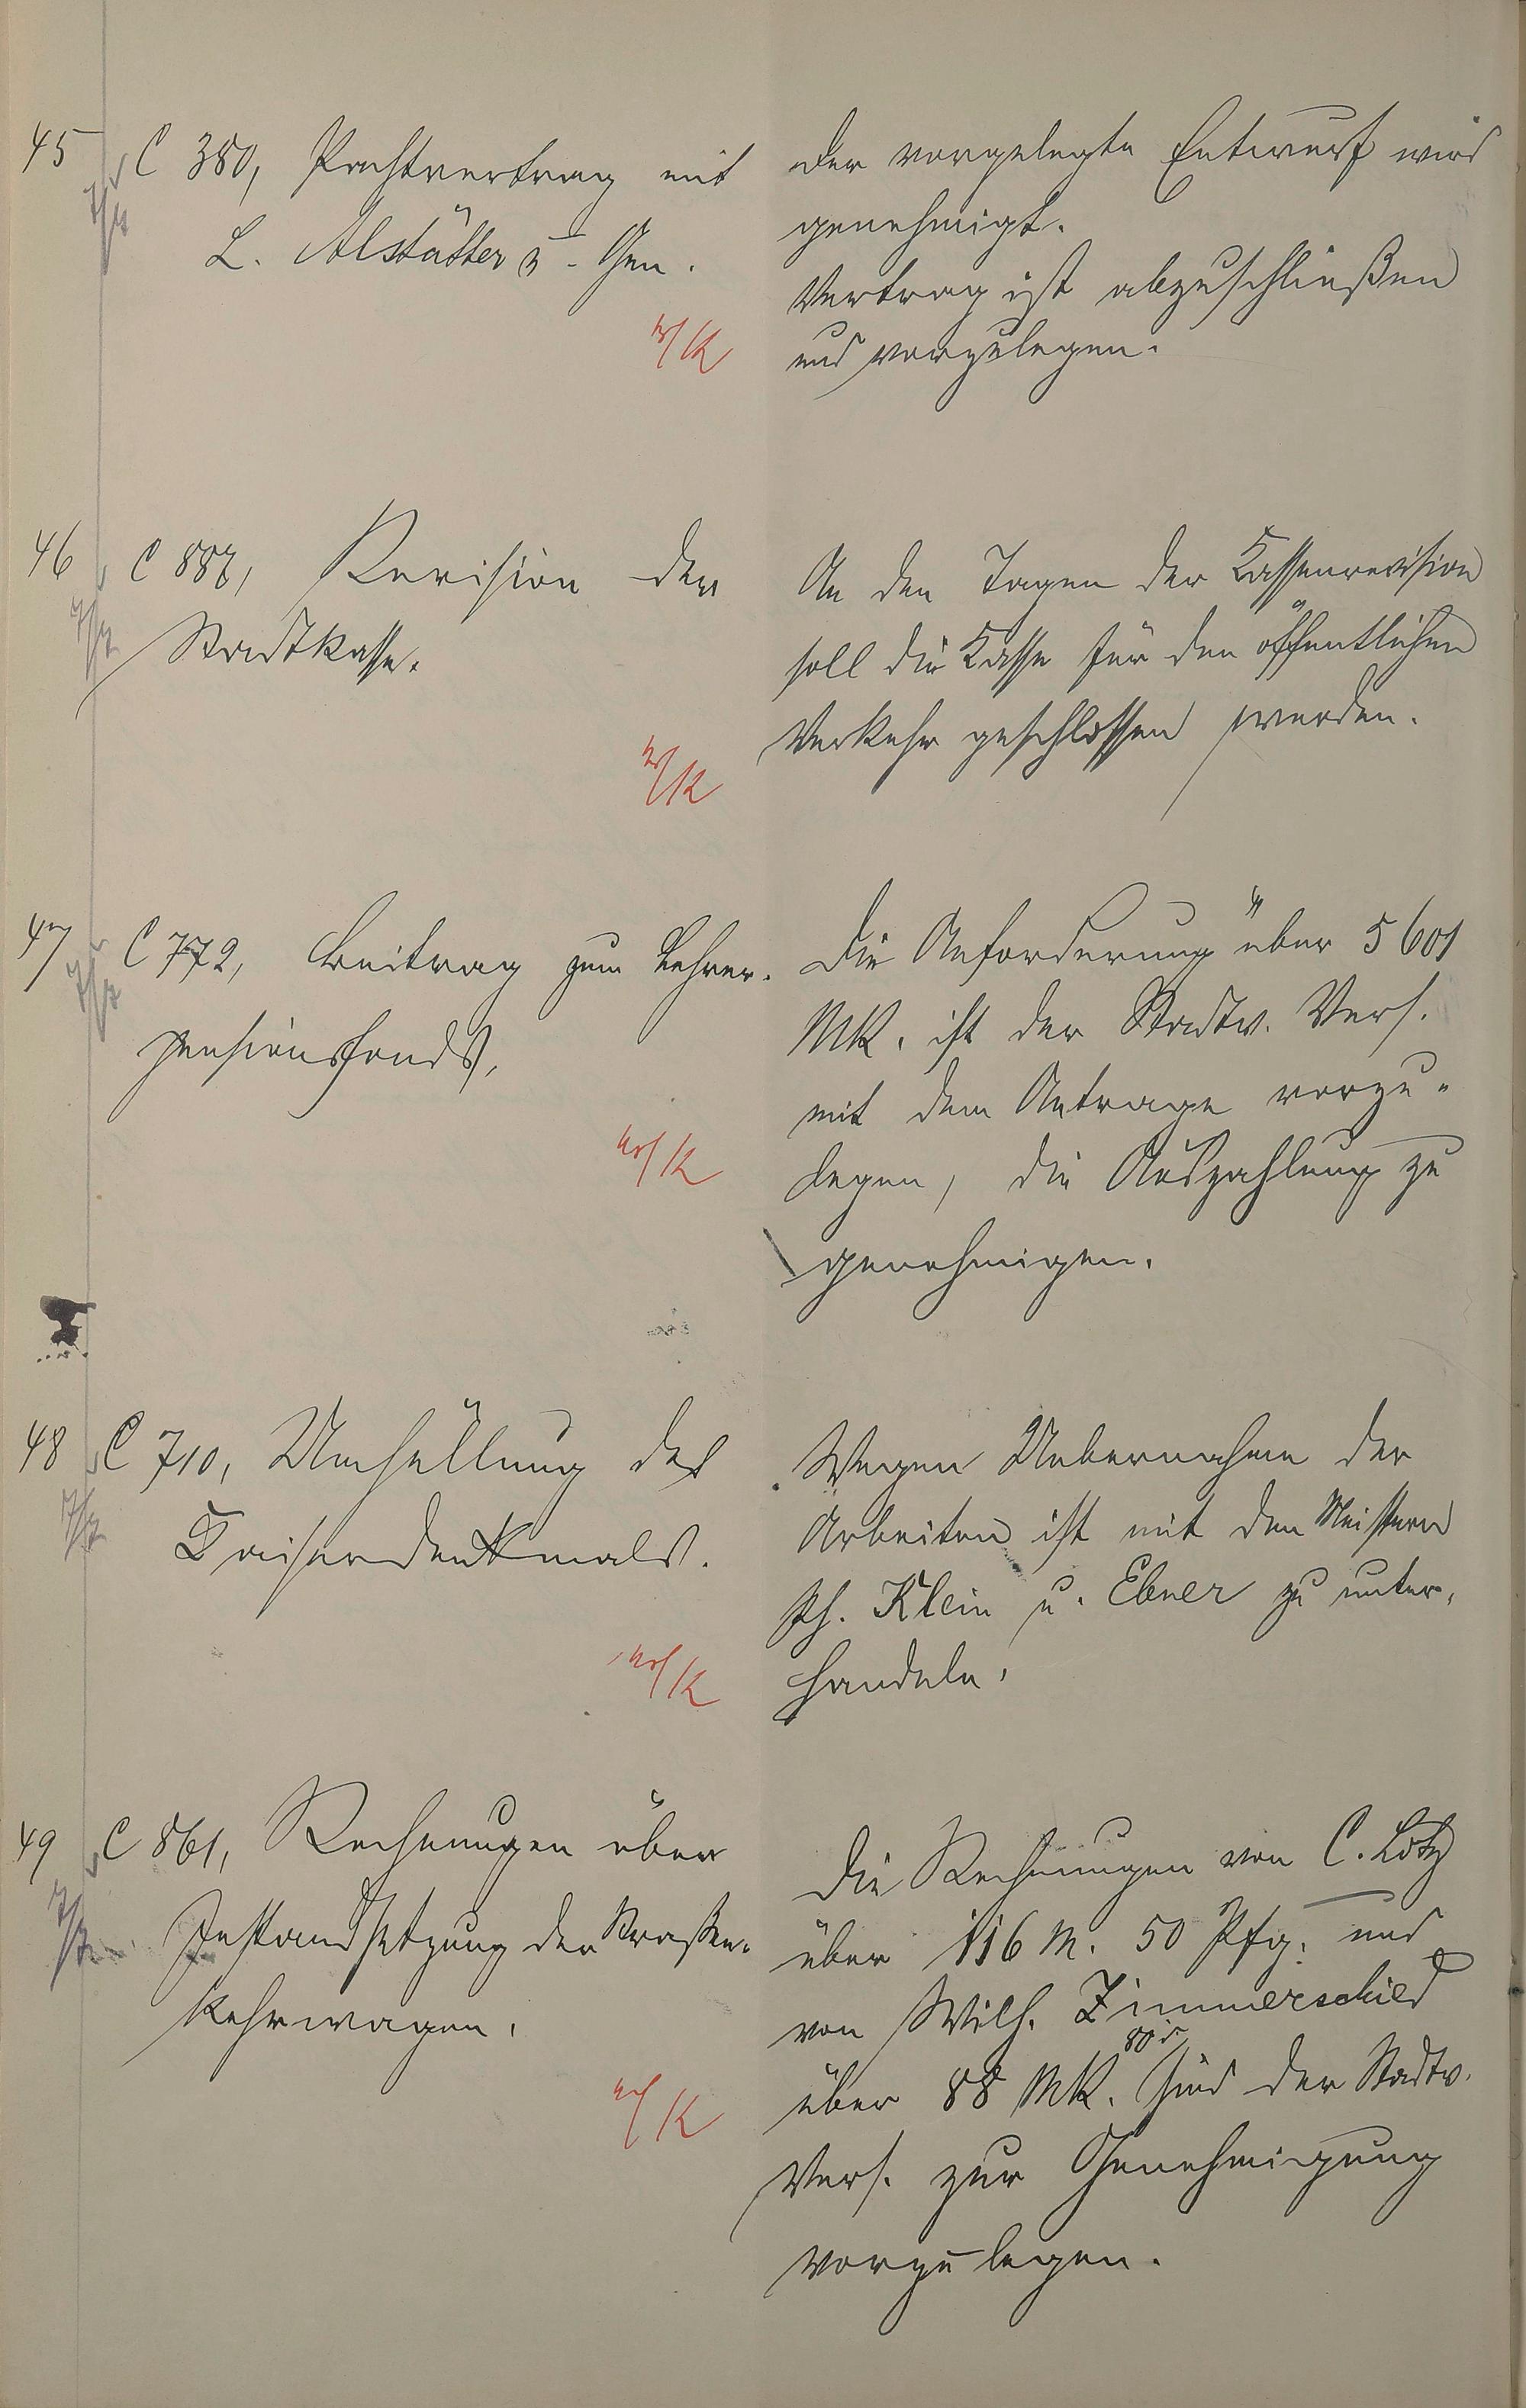 45
C 380, Pachtvertrag mit
L. Alstätter u. Gen.
Der vorgelegte Entwurf wird
genehmigt.
Vertrag ist abzuschließen
und vorzulegen.
46
C 887, Revision der
Stadtkasse.
An den Tagen der Kassenrevision
soll die Kasse für den öffentlichen
Verkehr geschlossen werden.
47
C 772, Beitrag zum Lehrer-
pensionsfonds,
Die Anforderung über 5601
Mk. ist der Stadtv. Vers.
mit dem Antrage vorzu-
legen, die Auszahlung zu
genehmigen.
48
C 710, Umhüllung des
Kaiserdenkmals.
Wegen Uebernahme der
Arbeiten ist mit den Meistern
Ph. Klein u. Ebner zu unter-
handeln.
49
C 861, Rechnungen über
Instandsetzung der Straßen-
kehrwagen.
Die Rechnungen von C. Lotz
über 116 M. 50 Pfg. und
von Wilh. Zimmerschied
über 88 Mk. 80 sind der Stadtv.
Vers. zur Genehmigung
vorzulegen.